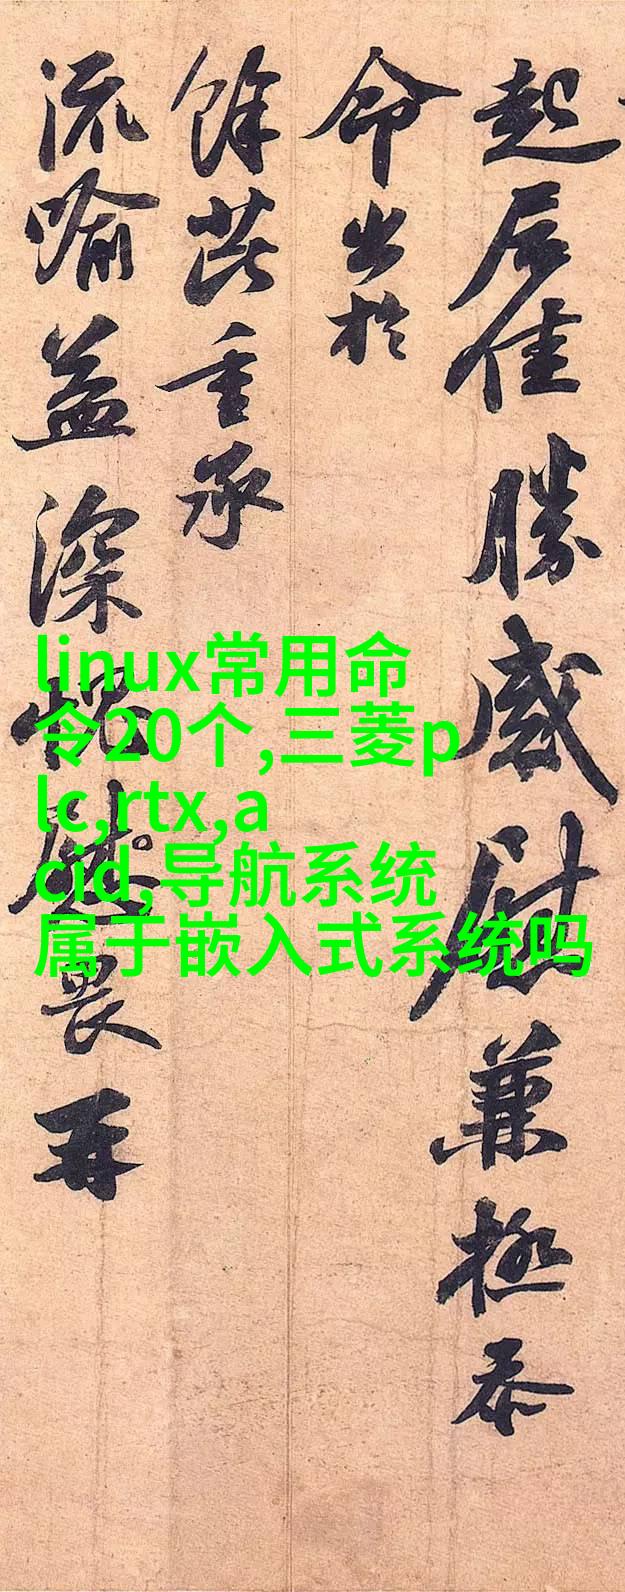 起居佳勝感慰兼極忝
命出於
餘芘重承
流喻益深愧畏再
linux常用命
令20个,三菱p
lc,rtx,a
cid,导航系统
属于嵌入式系统吗